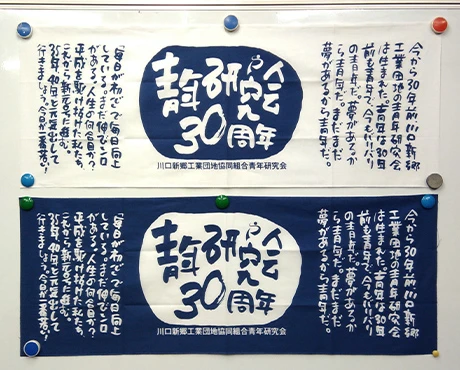 今から30年前川口新郷
工業団地の青年研究会
は生まれた。青年は30年
前も青年で、今もバリバリ
の青年だ。夢があるか
ら青年だ。まだまだ
夢があるから青年だ。
青年研究会
30周年
川口新郷工業団地協同組合青年研究会
「毎日が初めて」で毎日向上
している。まだまだ伸びシロ
がある。人生の何合目か?
平成を駆け抜けた私たち。
これから新元号を進む。
35年、40年と元気出して
行きましょう。今日が一番若い。
今から30年前川口新郷
工業団地の青年研究会
は生まれた。青年は30年
前も青年で、今もバリバリ
の青年だ。夢があるか
ら青年だ。まだまだ
夢があるから青年だ。
青年研究会
30周年
川口新郷工業団地協同組合青年研究会
「毎日が初めて」で毎日向上
している。まだまだ伸びシロ
がある。人生の何合目か?
平成を駆け抜けた私たち。
これから新元号を進む。
35年、40年と元気出して
行きましょう。今日が一番若い。